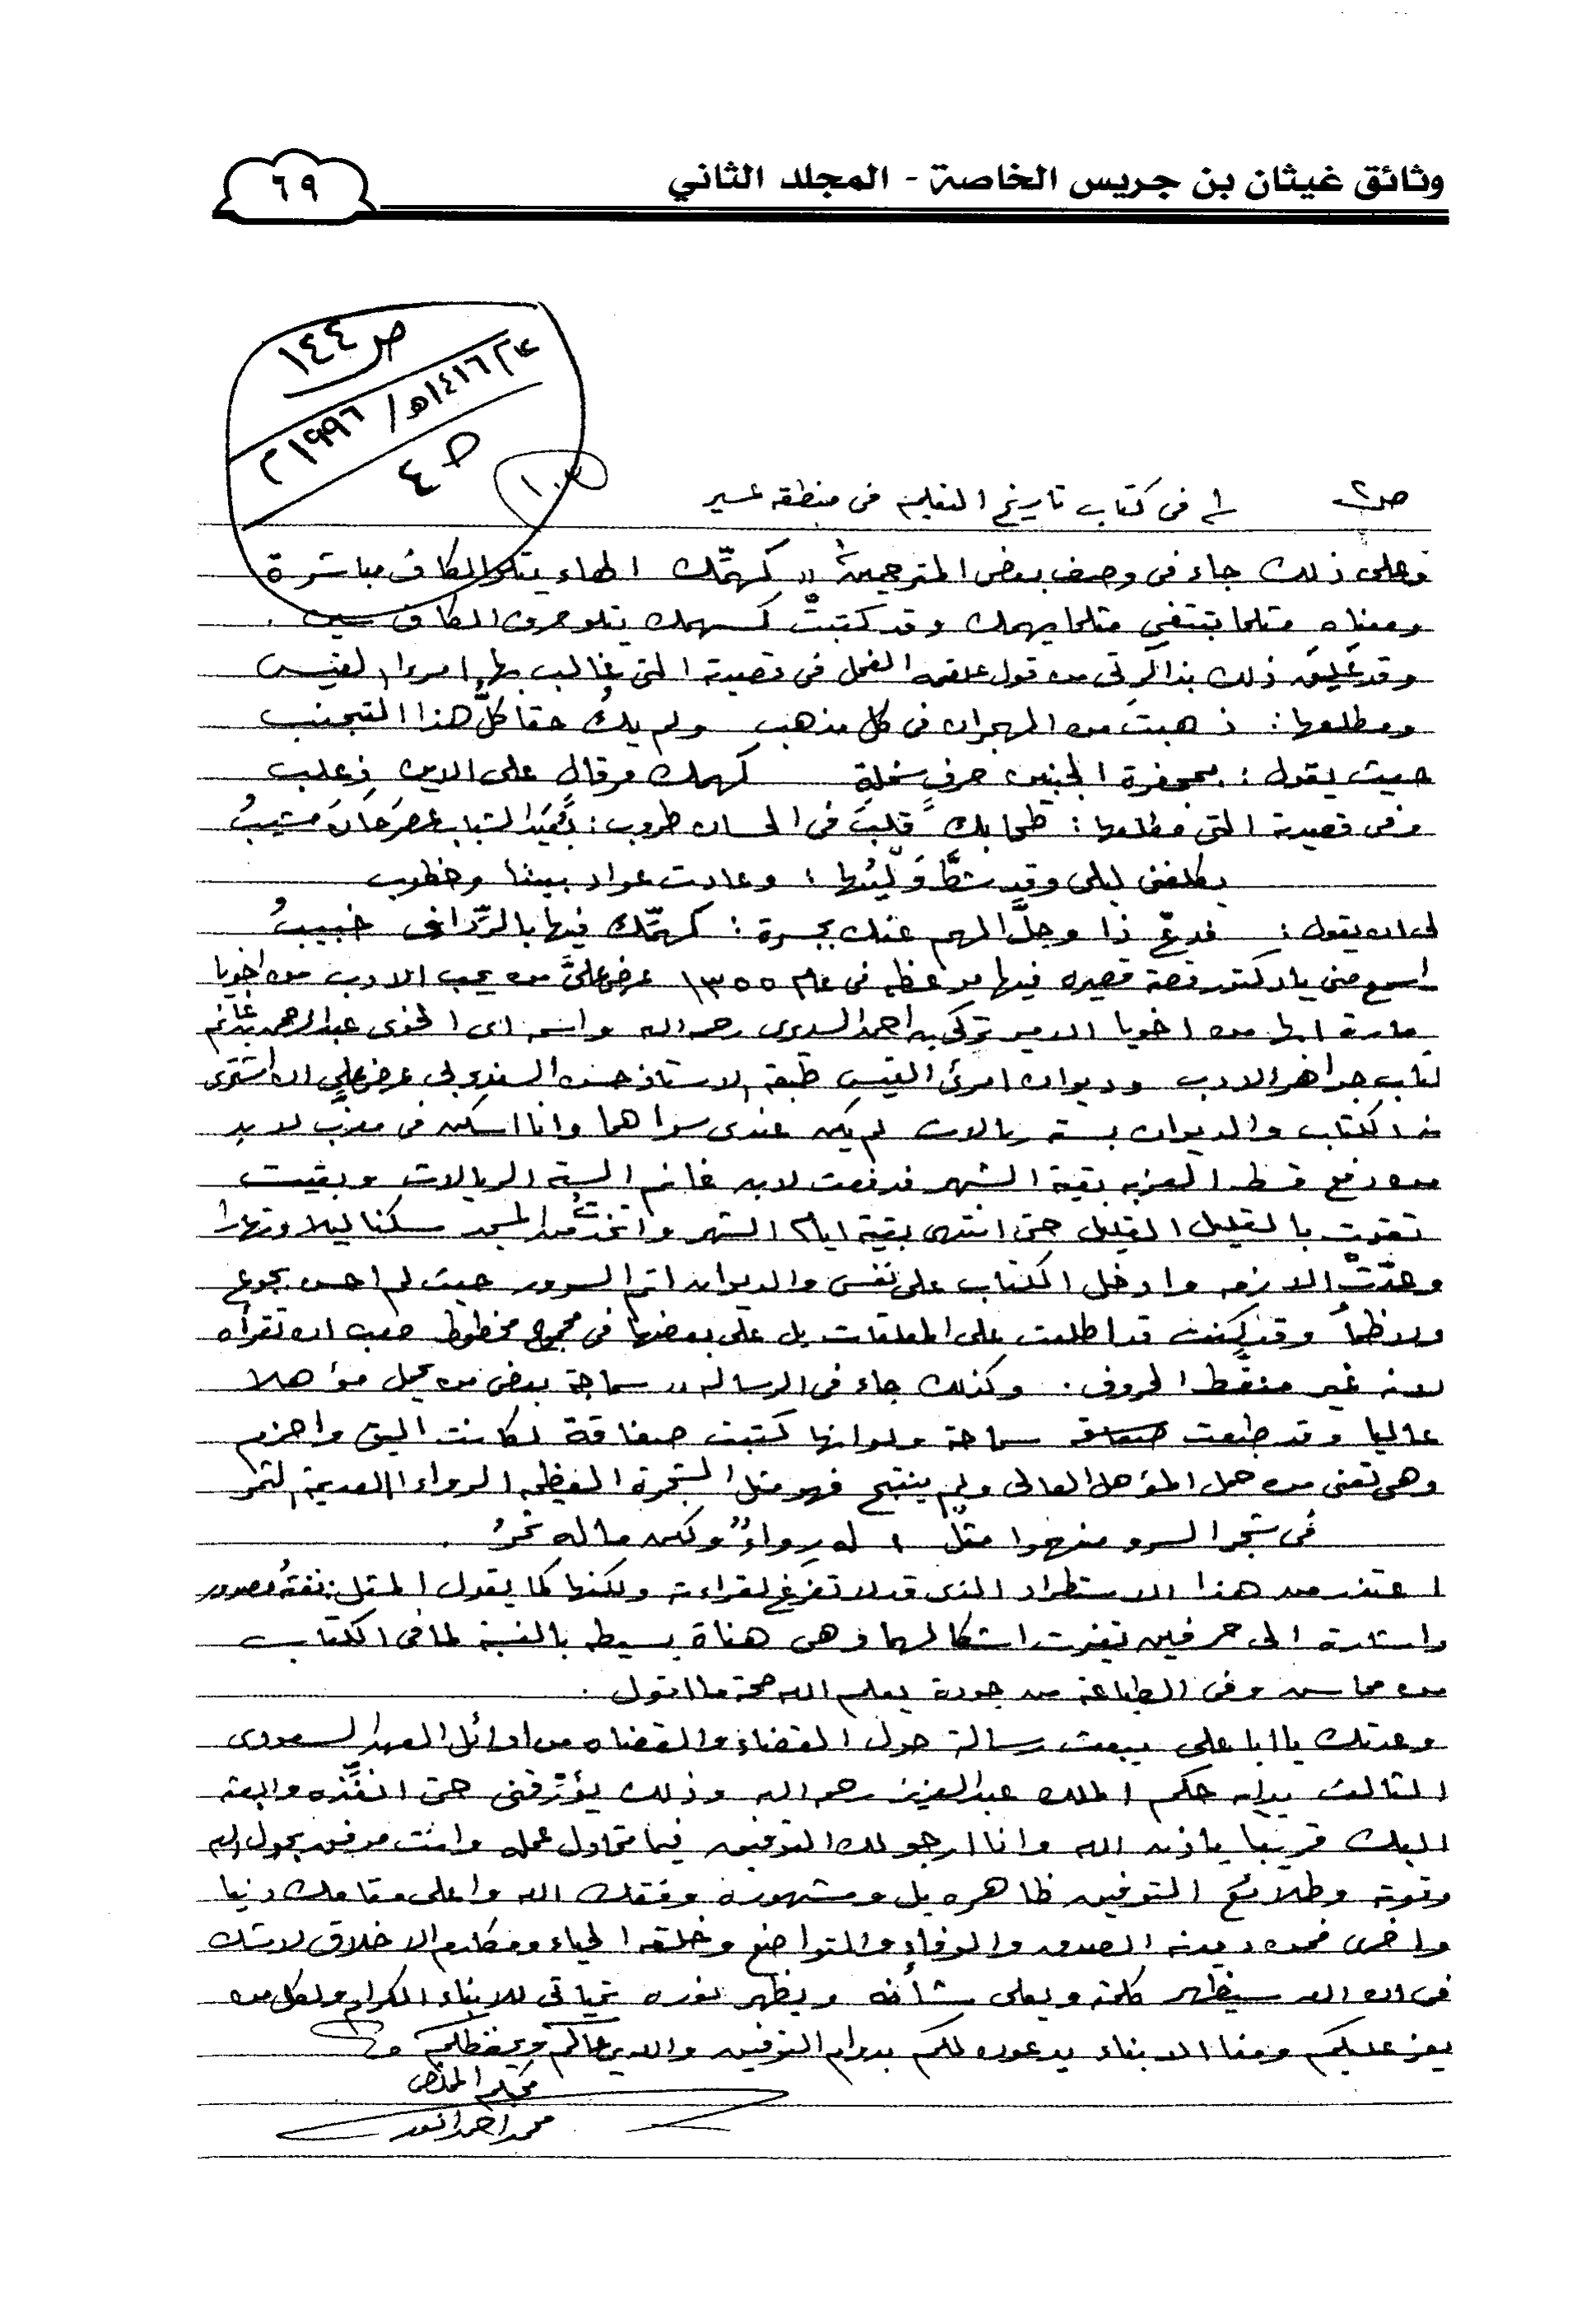 وثائق غيثان بن جريس الخاصة - المجلد الثاني
٦٩
ص١٤٤
١٤١٦هـ/ ١٩٩٦م
ح ٤
ص٢ في كتاب تاريخ التعليم في منطقة عسير
وعلى ذلك جاء في وصف بعض المترجمين " كهمّك الهاء يتلو الكاف مباشرة
ومعناه مثلما تبتغي مثلما يهمك وقد كتبت كسهمك يتلو حرف الكاف سين .
وقد علق ذلك بذاكرتي من قول علقمه الفحل في قصيدته التي غالب بها امروا القيس
ومطلعها : ذهبت من الهجران في كل مذهب ولم يك حقا كلّ هذا التجنب
حيث يقول : بمجفرة الجنبين حرف شملة كهمك مرقال على الاين ذعلب
وفي قصيدته التي مطلعها : طحا بك قلب في الحسان طروب : بُعَيْد الشباب عصر حان مشيبُ
يكلفني ليلى وقد شطّ وليُها : وعادت عواد بيننا وخطوب
الى ان يقول : فدع ذا وجلّ الهم عنك بجسرة : كهمّك فيها بالرّدافى خبيبُ
اسمع مني يا دكتور قصة قصيره فيها موعظه في عام ١٣٥٥ عرض عليّ من يحب الادب من اخويا
مارة ابها من اخويا الامير تركي بن احمد السديري رحمه الله واسم اى الخوى عبدالرحمن بن غانم
كتاب جواهر الادب وديوان امرئ القيس طبعة الاستاذ حسن السندوبي عرض علي ان اشترى
منه الكتاب والديوان بسته ريالات لم يكن عندى سواهما وانا اسكن في معزب لا بد
من دفع قسط العزبه بقية الشهر فدفعت لابن غانم الستة الريالات وبقيت
تقوت بالقليل القليل حتى انتهى بقية ايام الشهر واتخذتُ من المسجد سكنا ليلا ونهارا
وهدّت الازمه وادخل الكتاب على نفسي والديوان اتم السرور حيث لم احس بجوع
ولا ظمأ وقد كنت قد اطلعت على المعلقات بل على بعضها في مجموع مخطوط صعب ان تقرأه
لانه غير منقّط الحروف . وكذلك جاء في الرساله " سماجة بعض من يحمل مؤهلا
عاليا وقد طبعت سماحة ولو انها كتبت صفاقة لكانت اليق واحزم
وهي تعني من حمل المؤهل العالي ولم ينتج فهو مثل الشجرة العظيمه الرواء العديمة الثمر
في شجر السرو منهموا مثلٌ : له رواءٌ ولكن ما له ثمرُ .
اعتذر من هذا الاستطراد الذى قد لا تفرغ لقراءته ولكنها كما يقول المثل : نفثة مصدور
واشارة الى حرفين تغيرت اشكالهما وهي هناة بسيطه بالنسبة لما في الكتاب
من محاسن وفي الطباعة من جودة يعلم الله صحة ما اقول .
وعدتك يا ابا علي ببعث رسالة حول القضاء والقضاه من اوائل العهد السعودى
الثالث بدايه حكم الملك عبدالعزيز رحمه الله وذلك يؤرّقني حتى انفّذه وابعثه
اليك قريبا باذن الله وانا ارجو لك التوفيق فيما تحاول عمله وانت موفق بحول الله
وقوته وطلائع التوفيق ظاهره بل ومشهوره وفقك الله واعلى مقامك دنيا
واخرى فمن ديدنه الصدق والوفاء والتواضع وخلقه الحياء ومكارم الاخلاق لا شك
في ان الله سيظهر كلمته ويعلى شأنه ويظهر نوره تحياتي للابناء الكرام ولكل من
يعز عليكم ومنا الابناء يدعون لكم بدوام التوفيق والله يرعاكم ويحفظكم
محبكم المخلص
محمد احمد انور